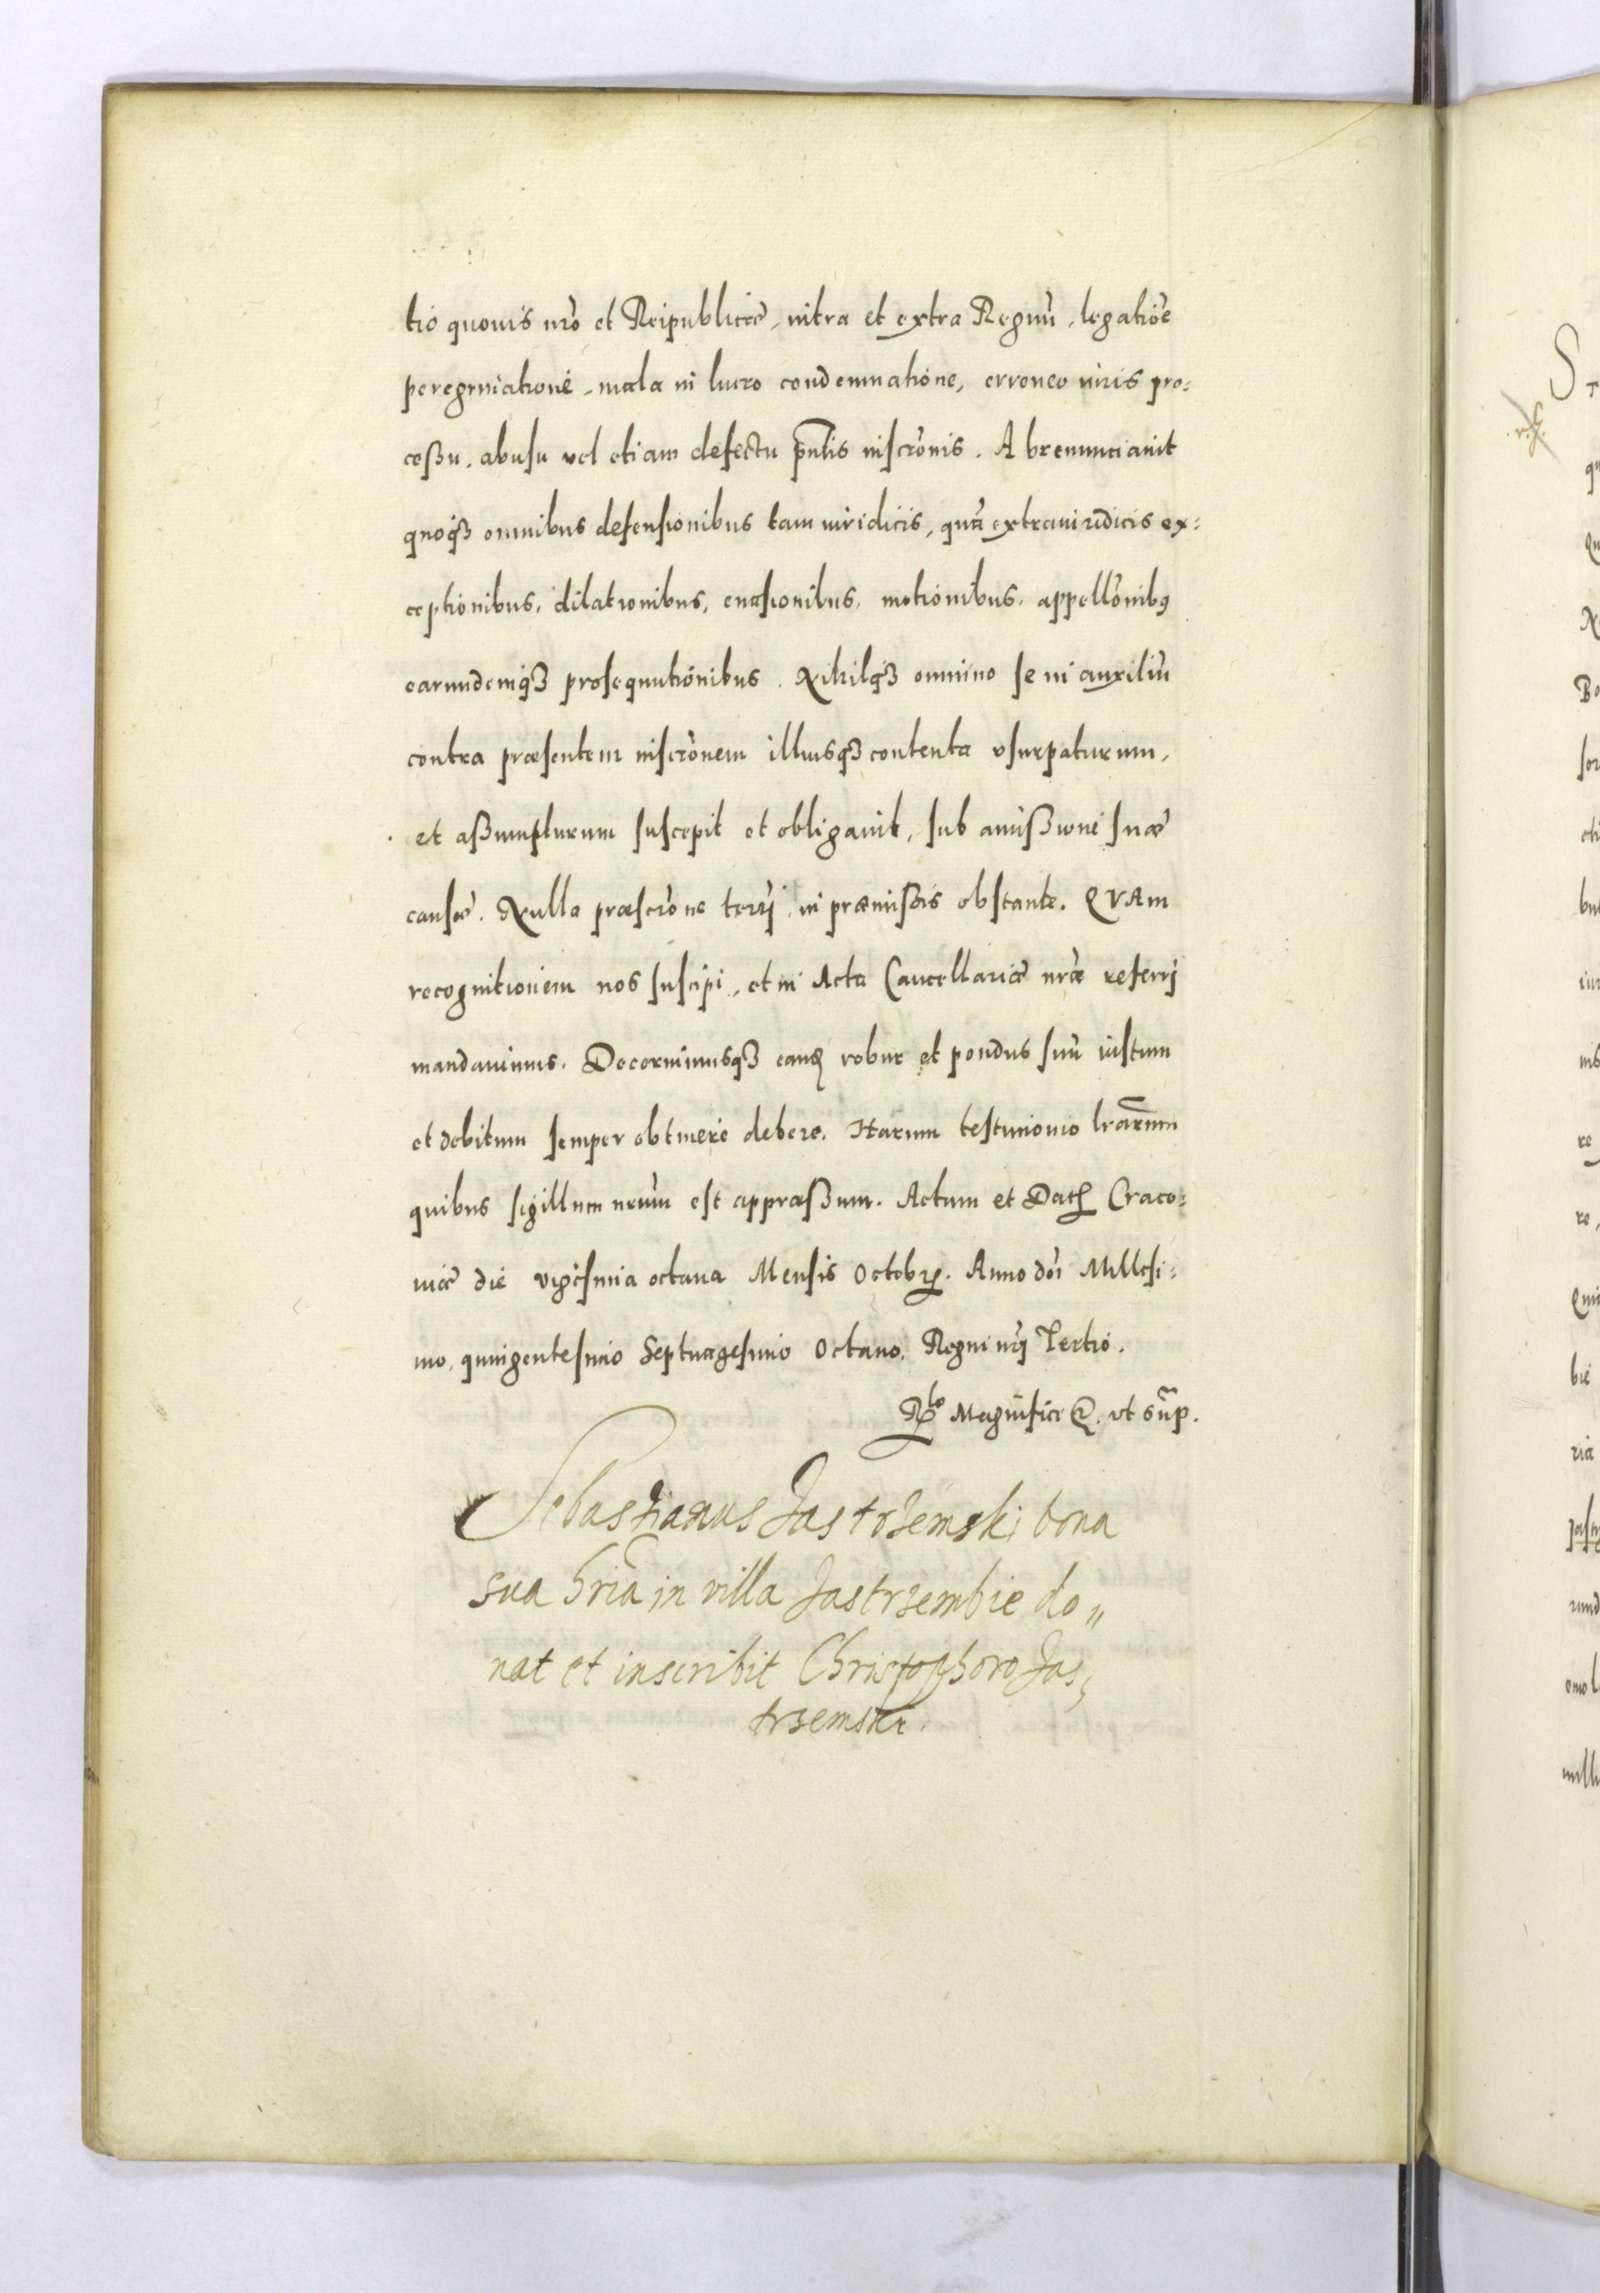 tio quouis nr̃o et Reipublicæ, intra et extra Regnũ, legatiõe
peregrinatione, mala in lucro condemnatione, erroneo iuris pro=
ceßu, abusu vel etiam defectu pñtis inscrõnis. Abrenunciauit
quoq3 omnibus defensionibus tam iuridicis, quã extraiuridicis ex=
ceptionibus, dilationibus, euasionibus, motionibus, appellõnibus
earundemq3 prosequutionibus. Nihilq3 omnino se in auxiliũ
contra præsentem inscrõnem illiusq3 contenta vsurpaturum,
et aßumpturum suscepit et obligauit, sub amißione suæ
causæ. Nulla præscrõne terrj in præmißis obstante. QVAm
recognitionem nos suscipi, et in Acta Cancellariæ nr̃æ referrj
mandauimus. Decernimusq3 eand robur et pondus suũ iustum
et debitum semper obtinere debere. Harum testimonio lrãrum
quibus sigillum nr̃um est appræßum. Actum et Dat Craco=
uiæ die vigesima octaua Mensis Octobr. Anno dñi Millesi=
mo, quingentesimo Septuagesimo Octauo, Regni nr̃j Tertio.
Rlo Magnifici &. vt sũp.
Sebastianus Jastrzemski bona
sua hr̃ia in villa Jastrzembie do„
nat et inscribit Christophoro Jas,
trzemski.